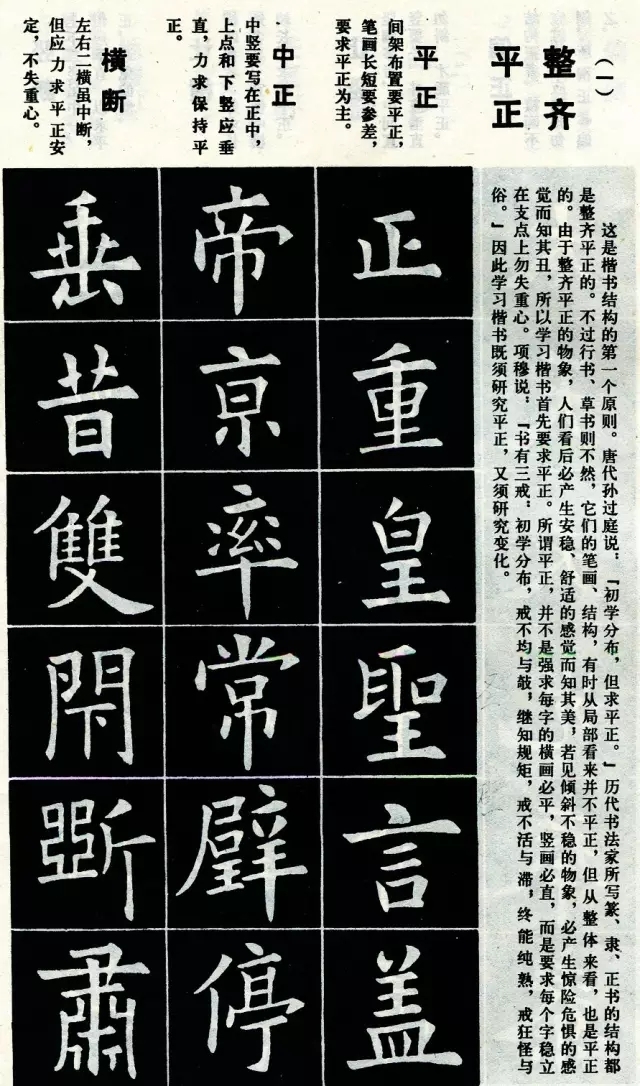 (一)
整齐
平正
这是楷书结构的第一个原则。唐代孙过庭说，『初学分布，但求平正。』历代书法家所写篆、隶、正书的结构都
是整齐平正的。不过行书、草书则不然，它们的笔画、结构，有时从局部看来并不平正，但从整体来看，也是平正
的。由于整齐平正的物象，人们看后必产生安稳、舒适的感觉而知其美，若见倾斜不稳的物象，必产生惊险危惧的感
觉而知其丑，所以学习楷书首先要求平正。所谓平正，并不是强求每字的横画必平，竖画必直，而是要求每个字稳立
在支点上勿失重心。项穆说，『书有三戒：初学分布，戒不均与敧，继知规矩，戒不活与滞，终能纯熟，戒狂怪与
俗。』因此学习楷书既须研究平正，又须研究变化。
平正
间架布置要平正，
笔画长短要参差，
要求平正为主。
正重皇聖言盖
中正
中竖要写在正中，
上点和下竖应垂
直，力求保持平
正。
帝亰率常壁停
横断
左右二横虽中断，
但应力求平正安
定，不失重心。
垂昔雙閇斷肅